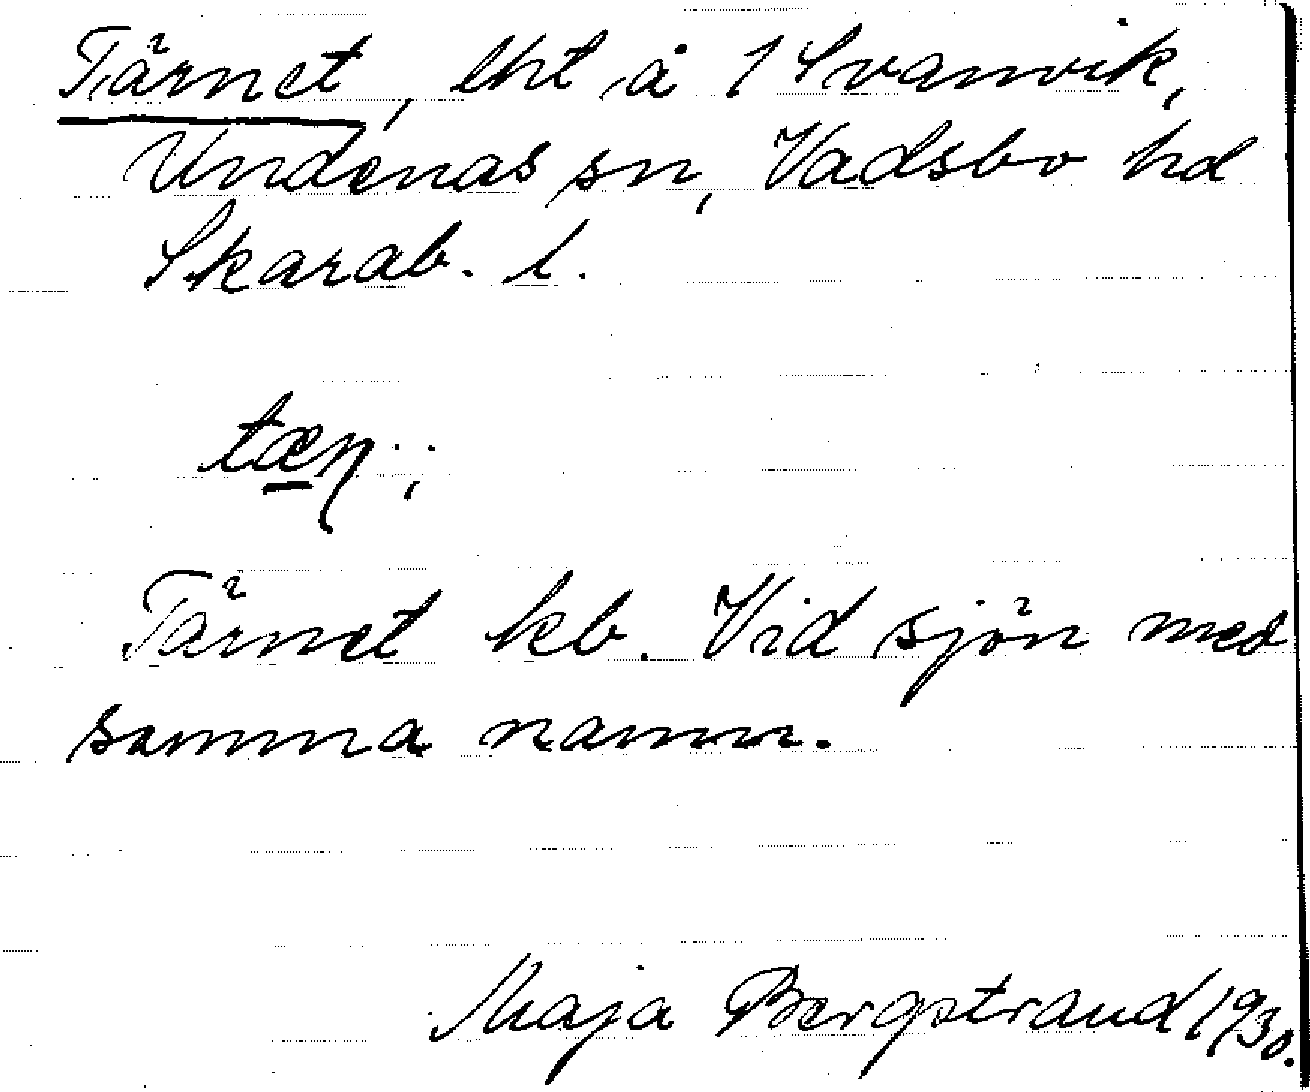 Tärnet, lht å 1 Svanvik,
Undenäs sn, Vadsbo hd
Skarab. l.
tæɳ··,
Tärnet kb. Vid sjön med
samma namn.
Maja Bergstrand 1930.